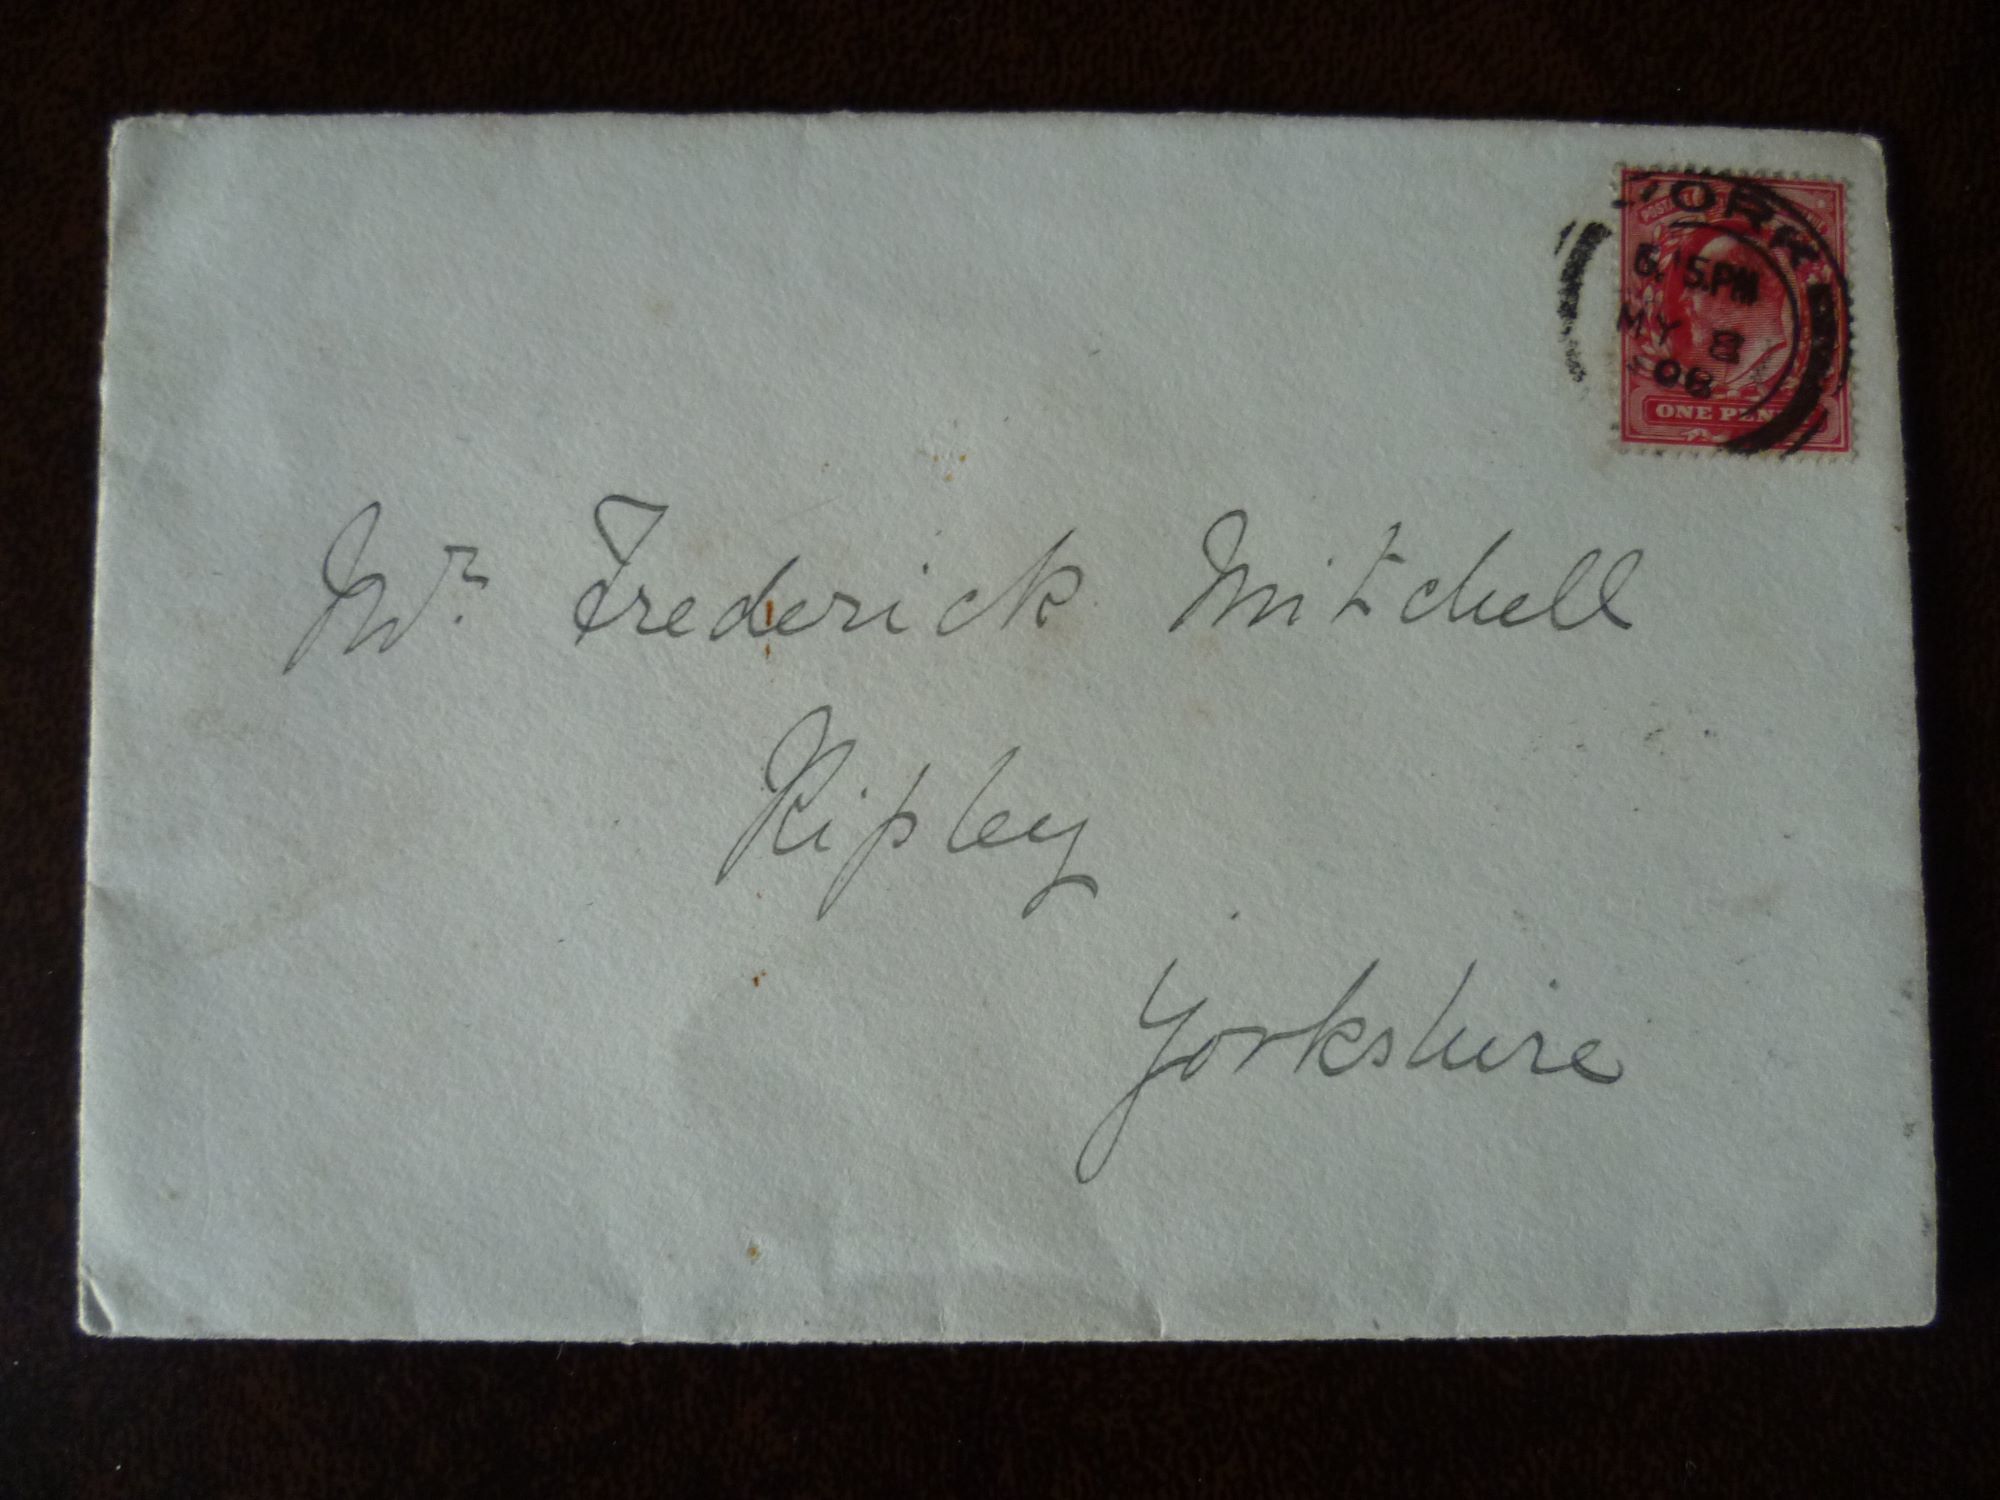 YORK
PM
MY 8
08
ONE PENNY
Mr. Frederick Mitchell
Ripley
Yorkshire